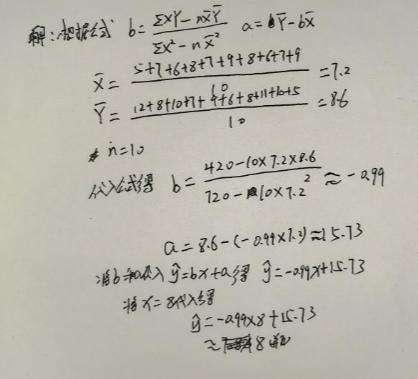 解:根据公式 b = (ΣXY - nX̄Ȳ)/(ΣX² - nX̄²) a = Ȳ - bX̄
X̄ = (5+7+6+8+7+9+8+6+7+9)/10 = 7.2
Ȳ = (12+8+10+7+9+6+8+11+10+5)/10 = 8.6
n = 10
代入公式得 b = (420 - 10×7.2×8.6)/(720 - 10×7.2²) ≈ -0.99
a = 8.6 - (-0.99×7.2) ≈ 15.73
将b和a代入 ŷ=bx+a得 ŷ=-0.99x+15.73
将x=8代入得
ŷ=-0.99×8+15.73
≈ 8